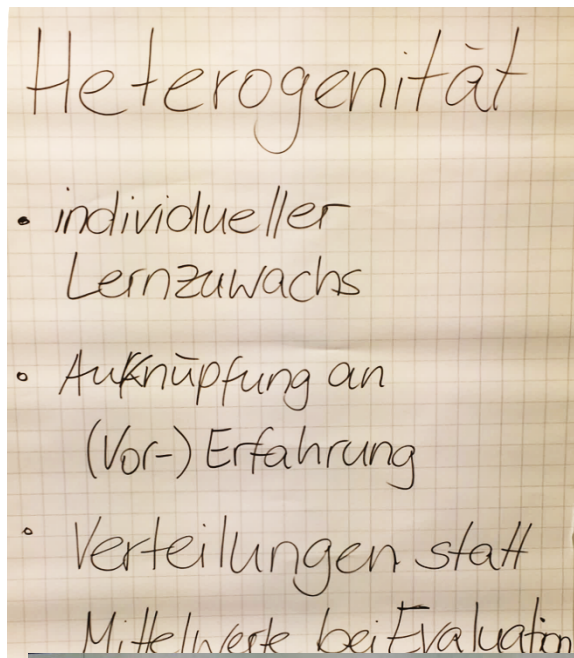 Heterogenität
• individueller
Lernzuwachs
• Anknüpfung an
(Vor-) Erfahrung
• Verteilungen statt
Mittelwerte bei Evaluation